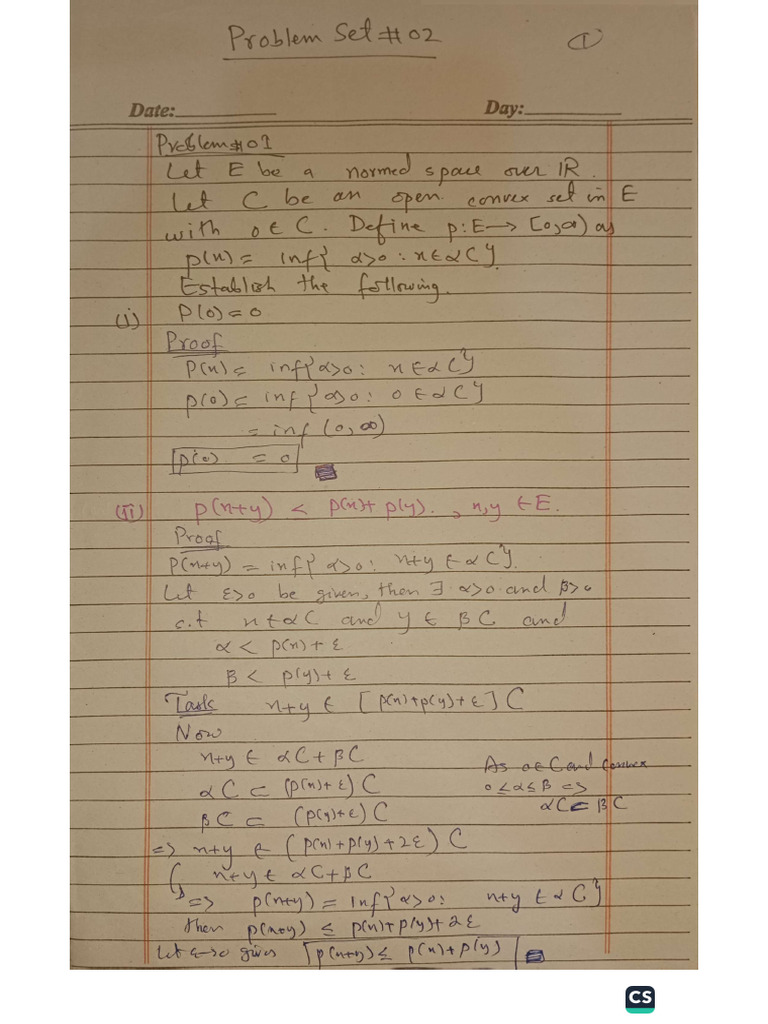 Problem Set # 02
①
Date: Day:
Problem # 01
Let E be a normed space over IR.
Let C be an open convex set in E
with 0 ∈ C. Define p: E → [0,∞) as
p(x) = inf{ α>0 : x ∈ αC}.
Establish the following.
(i) P(0) = 0
Proof
P(x) = inf{ α>0 : x ∈ αC}
p(0) = inf{ α>0 : 0 ∈ αC}
= inf (0,∞)
p(0) = 0
(ii) p(x+y) < p(x)+ p(y). , x,y ∈ E.
Proof
P(x+y) = inf{ α>0 : x+y ∈ αC}.
Let ε>0 be given, then ∃ α>0 and β>0
s.t x ∈ αC and y ∈ βC and
α < p(x) + ε
β < p(y) + ε
Task x+y ∈ [p(x)+p(y)+ε] C
Now
x+y ∈ αC + βC
As 0 ∈ C and convex
αC ⊂ (p(x)+ε) C
0 ≤ α ≤ β =>
αC ⊂ βC
βC ⊂ (p(y)+ε) C
=> x+y ∈ (p(x)+p(y)+2ε) C
x+y ∈ αC+βC
=> p(x+y) = inf{ α>0 : x+y ∈ αC}
then p(x+y) ≤ p(x)+p(y)+2ε
Let ε→0 gives p(x+y) ≤ p(x)+p(y)
CS